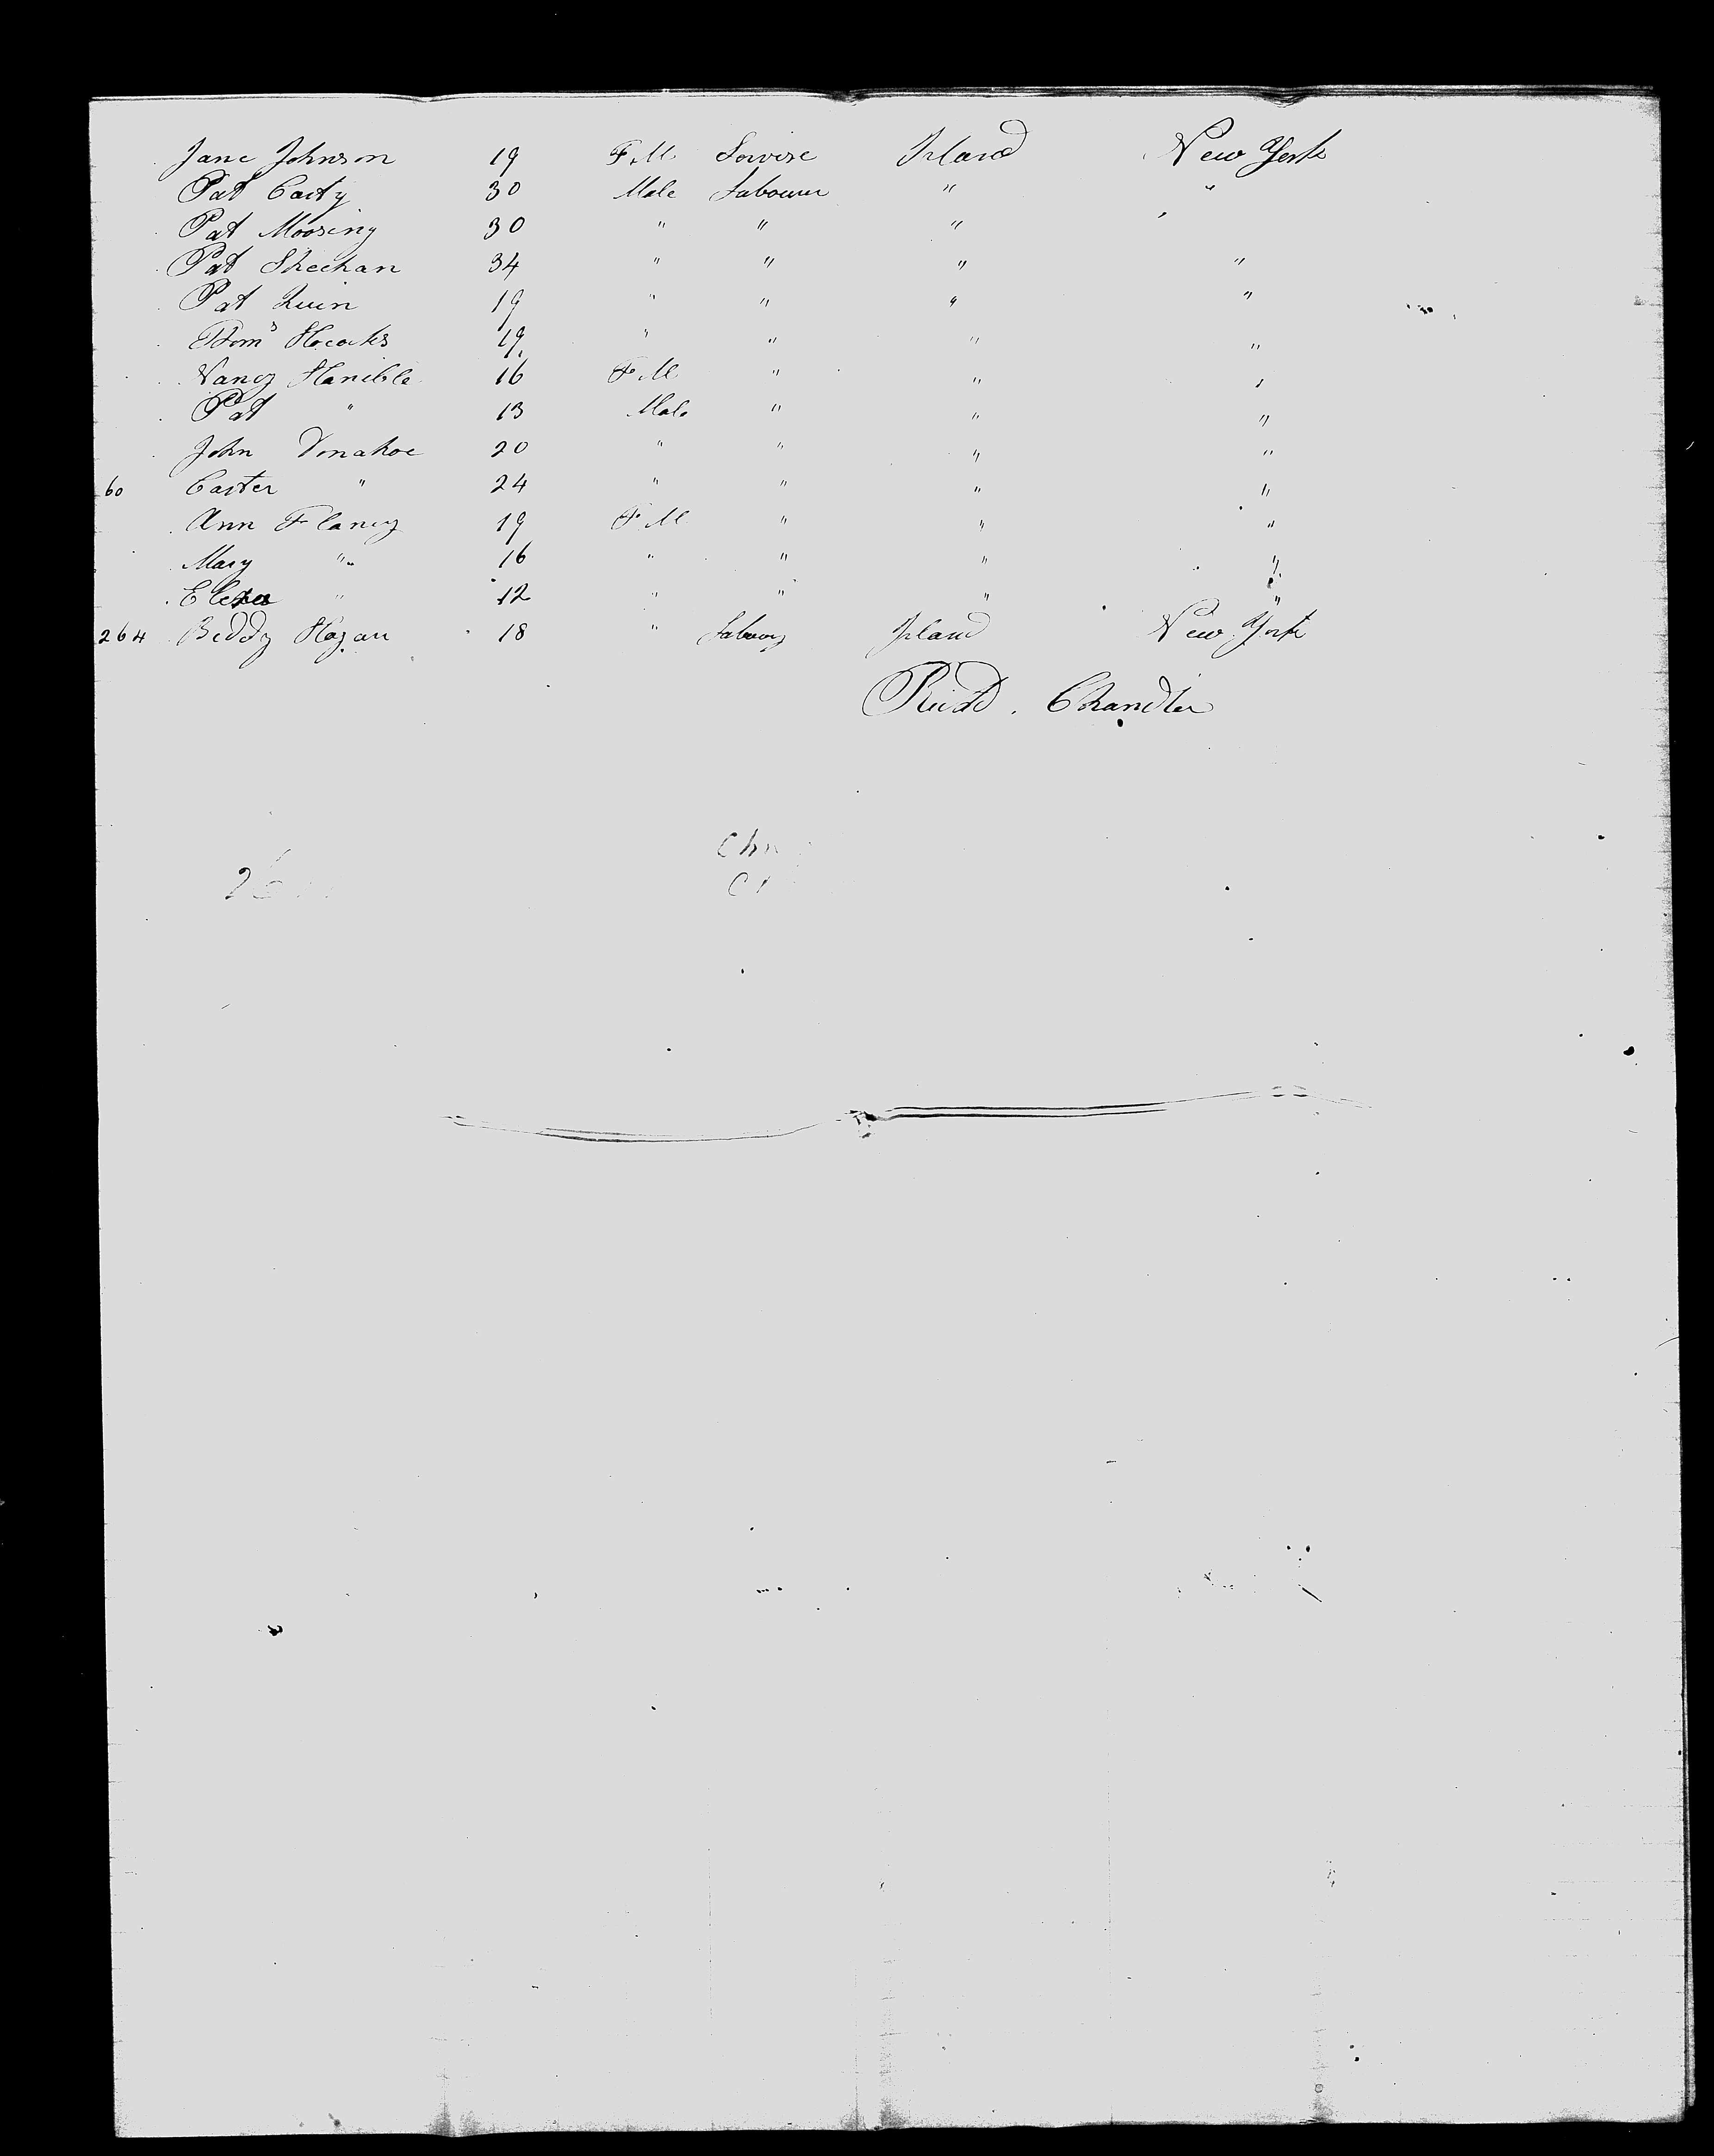 Jane Johnson 19 F.M. Servise Irland New York
Pat Carty 30 Male Labourer " "
Pat Moosing 30 " " " "
Pat Sheehan 34 " " " "
Pat Quin 19 " " " "
Thoms 19 " " " "
Nancy Hanible 16 F.M. " " "
Pat " 13 Male " " "
John Donahoe 20 " " " "
60 Carter " 24 " " " "
Ann Flancy 19 F.M " " "
Mary " 16 " " " "
Eleza " 12 " " " "
264 Biddy Hogan 18 " Irland New York
Richd. Chandler